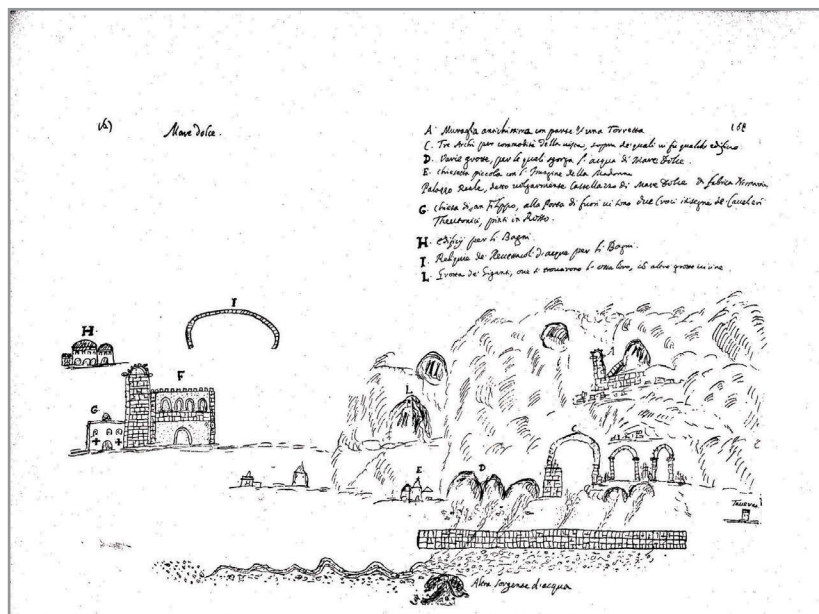 Mare dolce.
168
A. Muraglia antichissima con parte d'una Torretta
C. Tre Archi per commodità della, sopra de quali vi fu qualche edificio
D. Varie grotte, per le quali sgorga l'acqua di Mare Dolce.
E. chiesetta piccola con l'Imagine della Madonna
Palazzo Reale, detto volgarmente Castellazzo di Mare Dolce di fabrica
G. chiesa di san Filippo, alla Porta di fuori vi sono due Croci insegna de Cavalieri
Theutonici, pinti in Rosso.
H. edificij per li Bagni.
I. Reliquie de d'acqua per li Bagni.
L. Grotta de Giganti, ove si trovarono l'ossa loro, et altre grotte vicine
I
H
F
A
L
G
C
E
D
Altra sorgense d'acqua